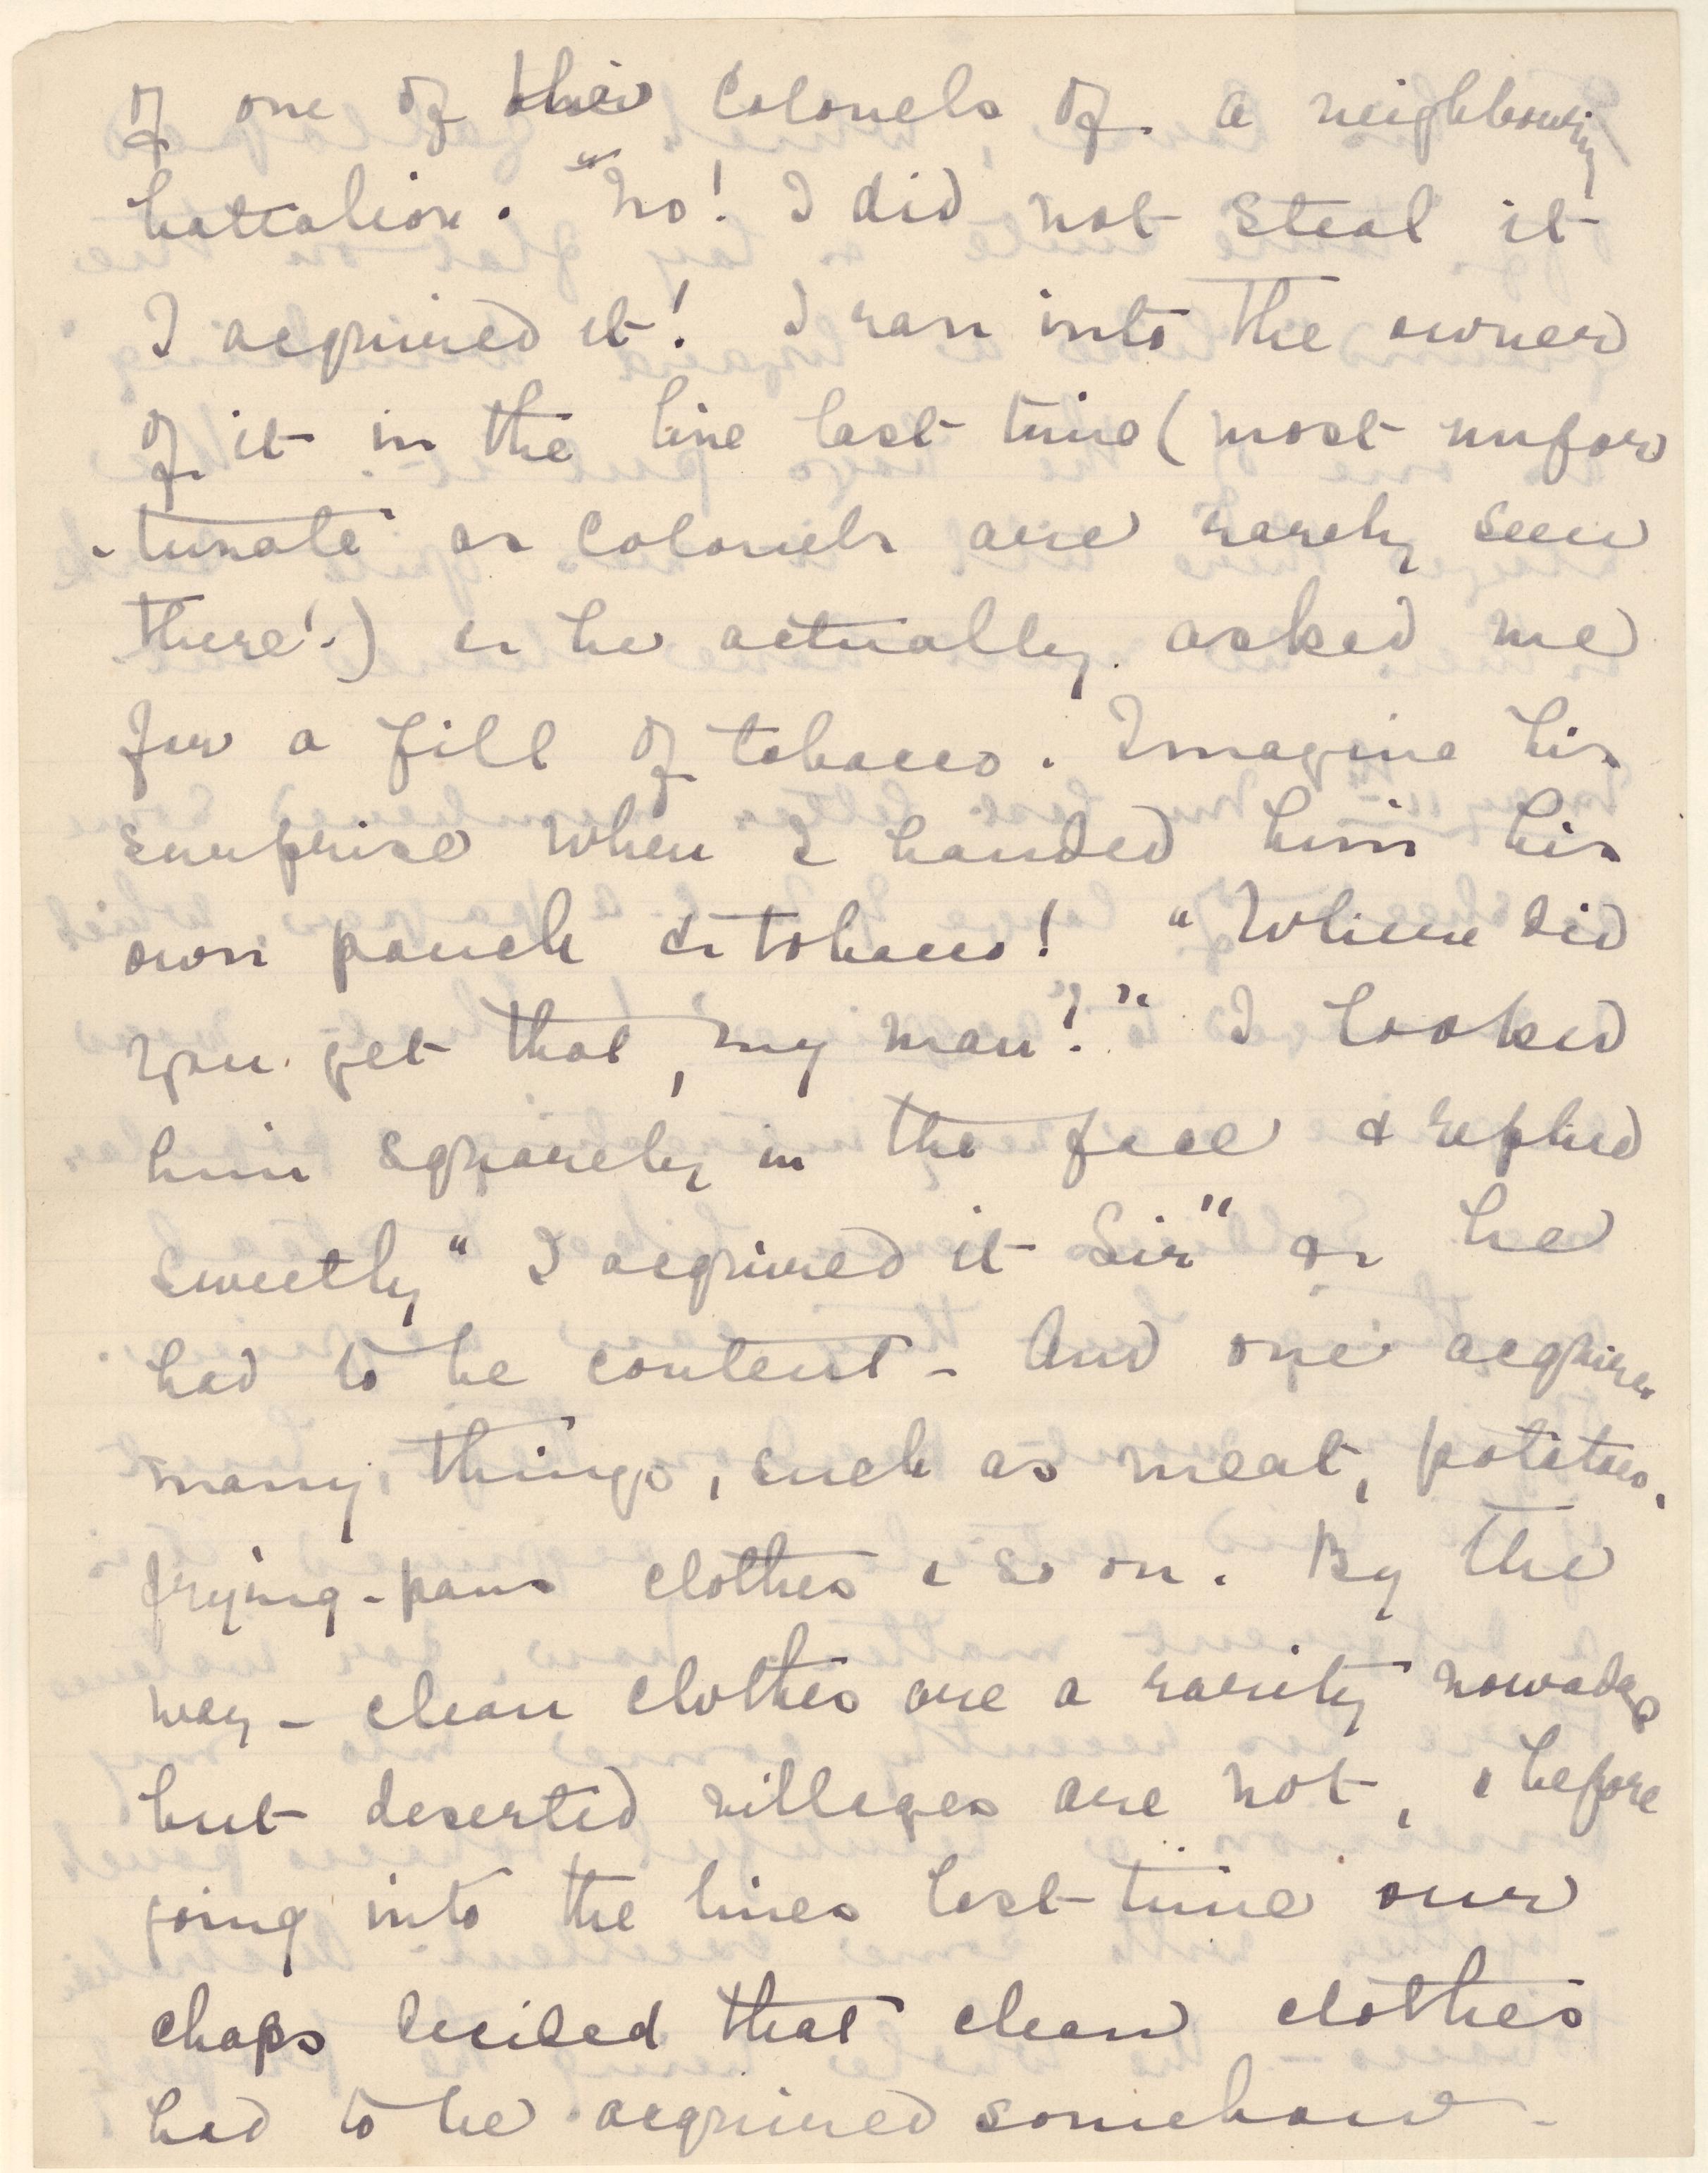 of one of the colonels of a neighbouring
battalion. "No! I did not steal it
I acquired it! I ran into the owner
of it in the line last time (most unfor
-tunate as Colonels are rarely seen
there!) & he actually asked me
for a fill of tobacco. Imagine his
surprise when I handed him his
own pouch & tobacco! "Where did
you get that, my man?" I looked
him squarely in the face & replied
sweetly "I acquired it Sir" & he
had to be content - And one acquires
many things, such as meat, potatoes,
frying-pans clothes & so on. By the
way - clean clothes are a rarity nowadays
but deserted villages are not, & before
going into the lines last time our
chaps decided that clean clothes
had to be acquired somehow -